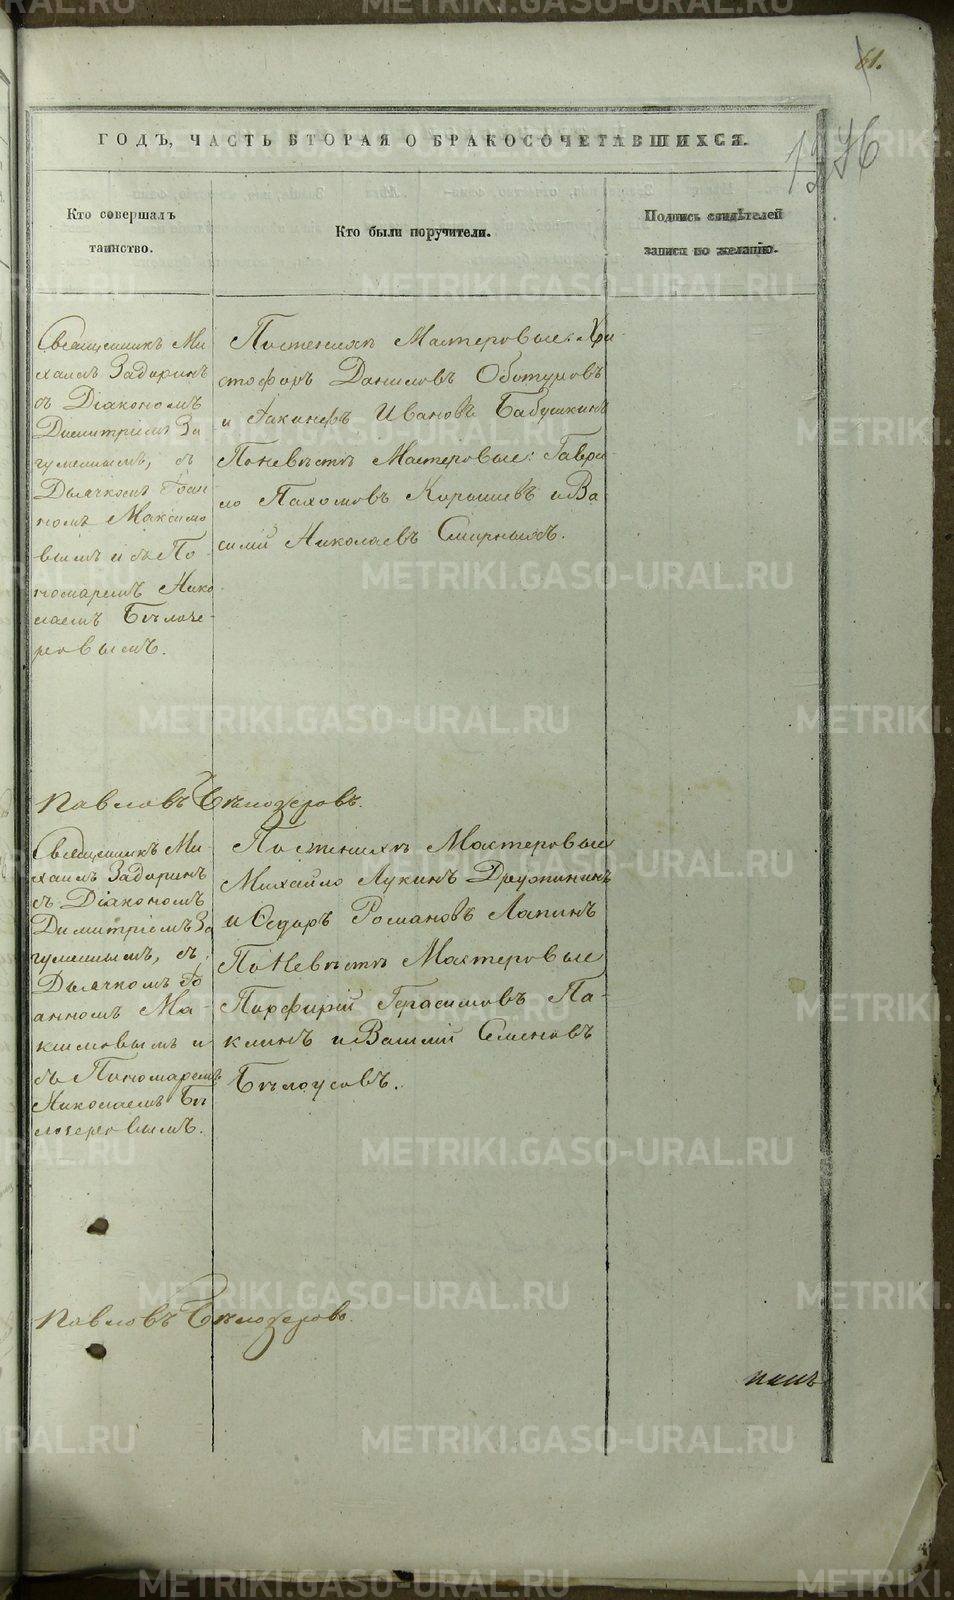 61.
ГОДЪ, ЧАСТЬ ВТОРАЯ О БРАКОСОЧЕТАВШИХСЯ.
Кто совершалъ
таинство.
Кто были поручители.
Подпись свидѣтелей
записи по желанію.
Священникъ Ми
хаилъ Задоринъ
съ Діакономъ
Димитріемъ За
гуменнымъ, съ
Дьячкомъ Іоан
номъ Максимо
вымъ и съ По
номаремъ Нико
лаемъ Бѣлозе-
ровымъ.
Поженихѣ Мастеровые: Хри
стофоръ Даниловъ Оботуровъ
и Іакинѳъ Ивановъ Бабушкинъ
Поневѣстѣ Мастеровые: Гаври
ло Пахомовъ и Ва
силій Николаевъ Смирныхъ.
Павловъ Бѣлозеровъ.
Священникъ Ми-
хаилъ Задоринъ
съ Діакономъ
Димитріемъ За
гуменнымъ, съ
Дьячкомъ Іо
анномъ Ма-
ксимовымъ и
съ Пономаремъ
Николаемъ Бѣ
лозеровымъ.
Поженихѣ Мастеровые
Михайло Лукинъ Дружининъ
и Ѳедоръ Романовъ Лапинъ
Поневѣстѣ Мастеровые
Порфирій Герасимовъ Па-
клинъ и Василій Семеновъ
Бѣлоусовъ.
Павловъ Бѣлозеровъ.
METRIKI.GASO-URAL.RU